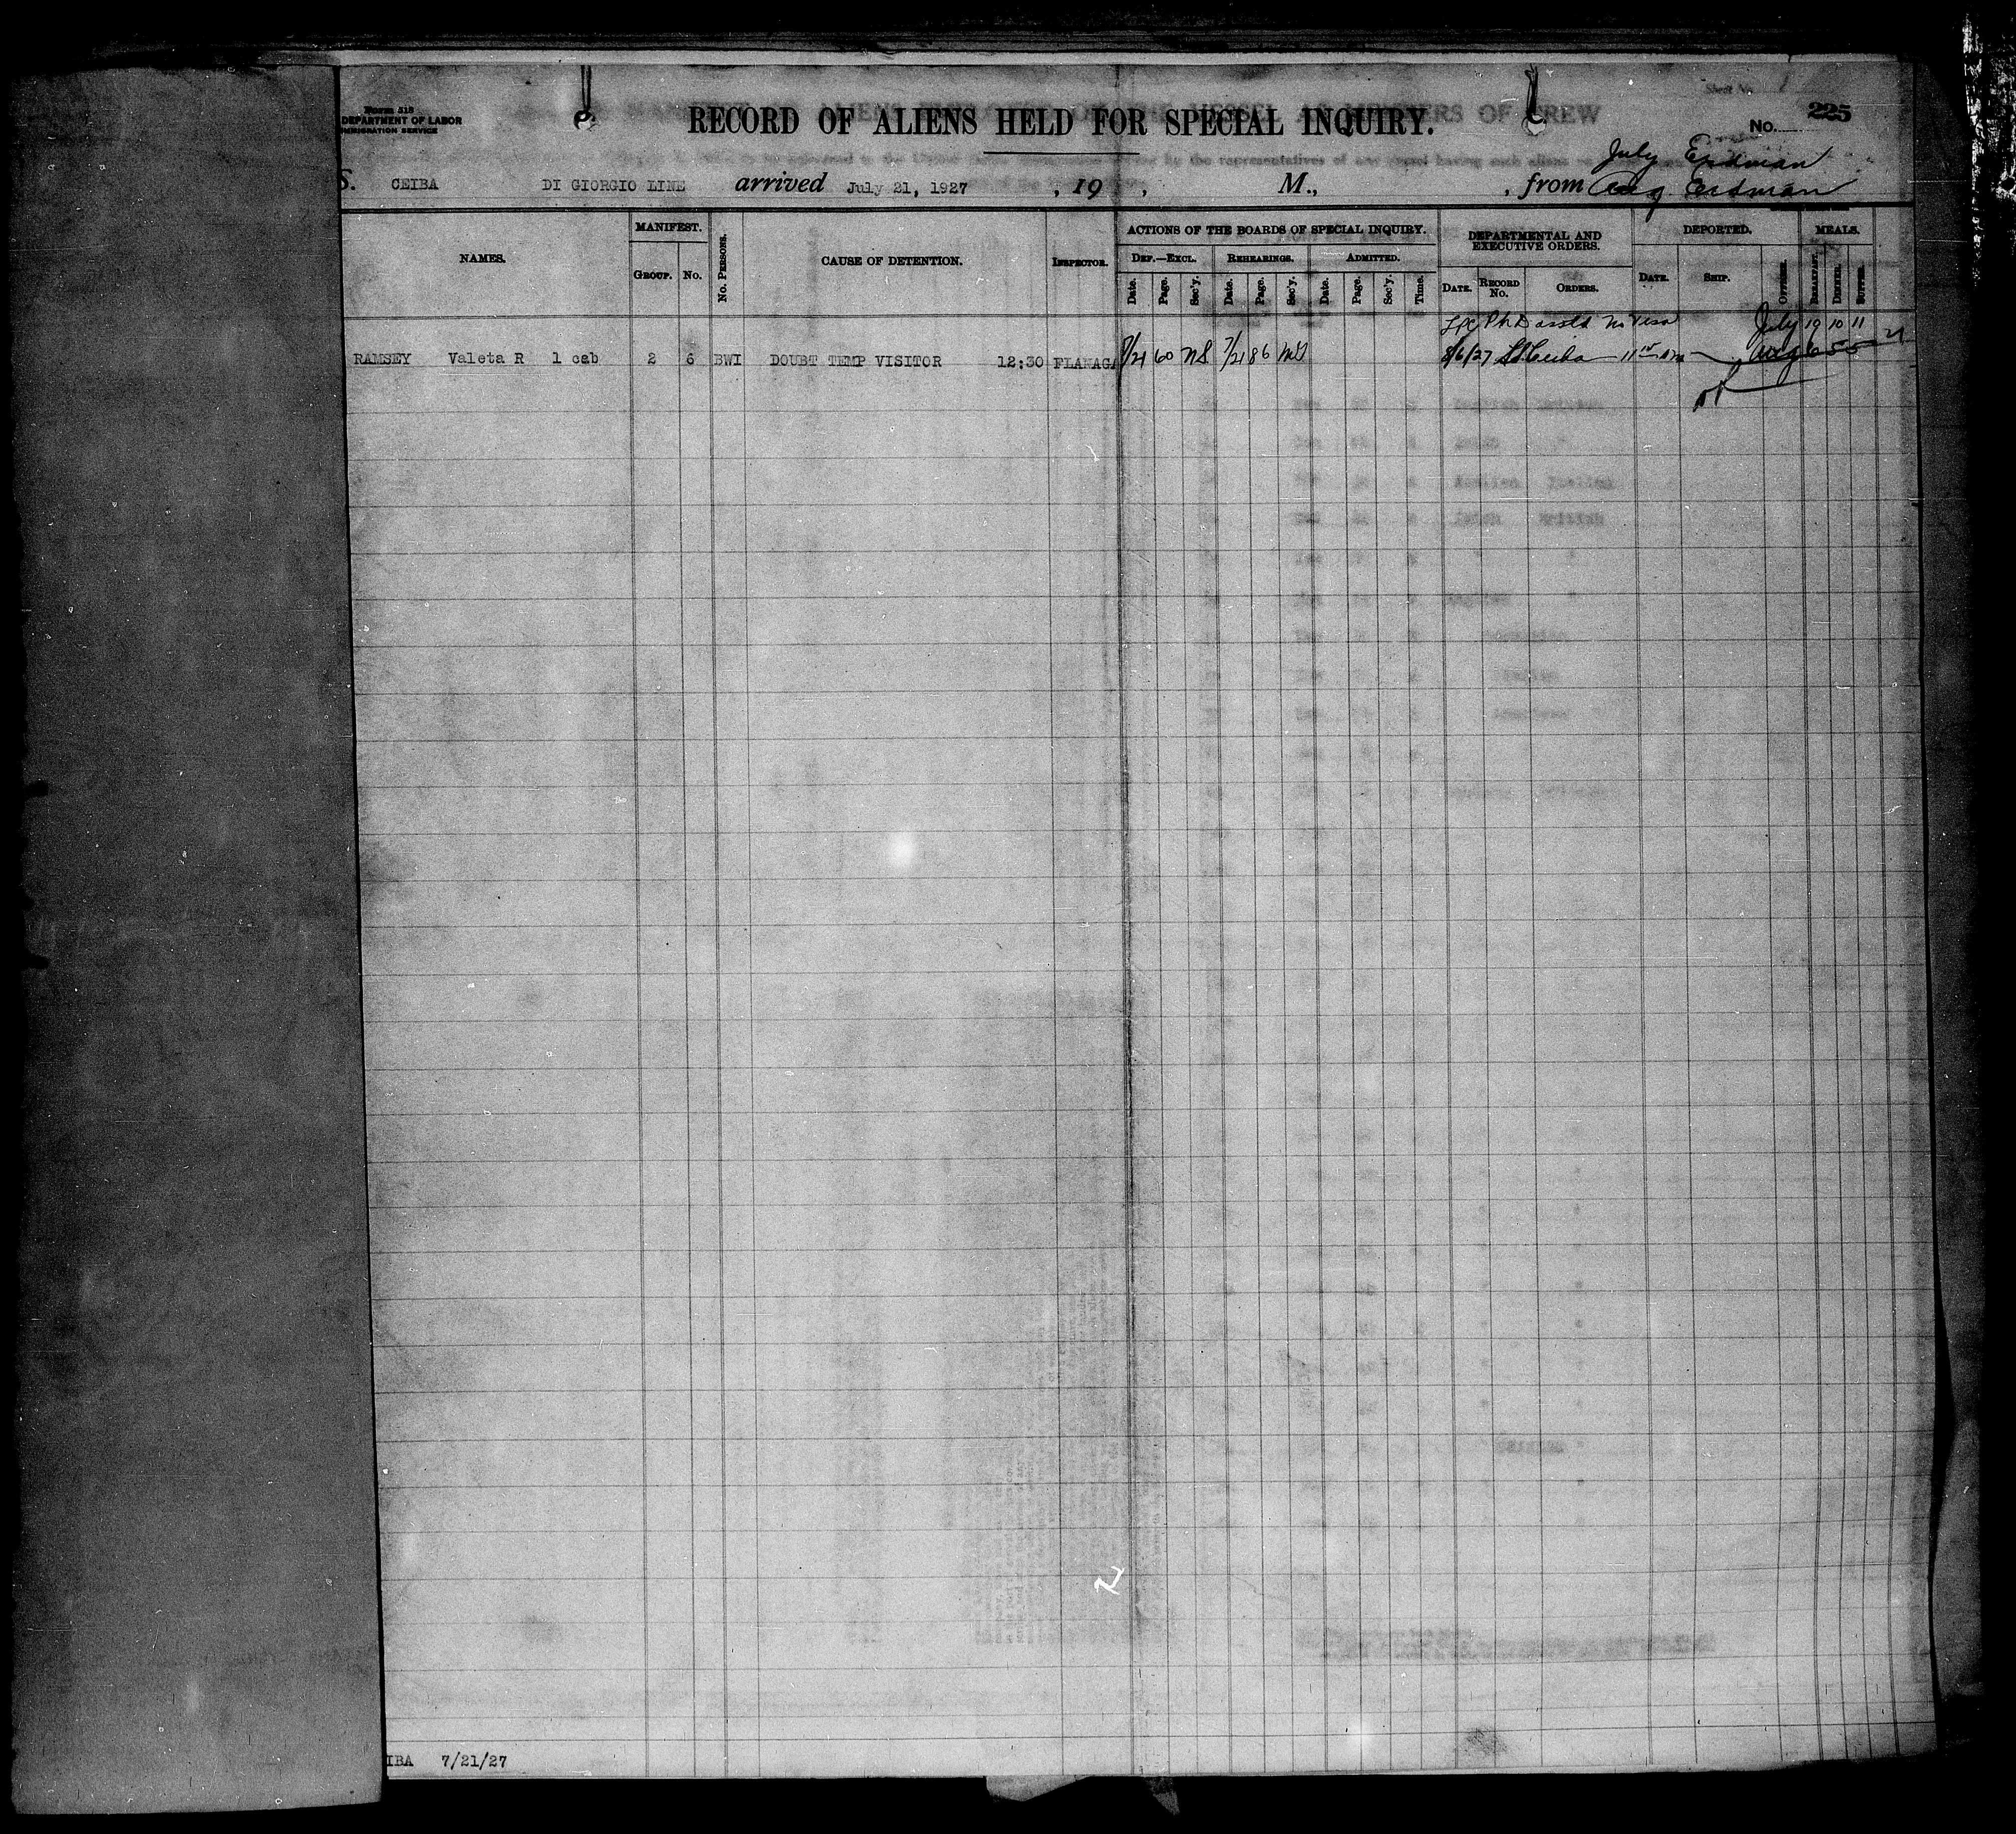 Form 518
DEPARTMENT OF LABOR
IMMIGRATION SERVICE
Sheet No.
RECORD OF ALIENS HELD FOR SPECIAL INQUIRY.
No. 225
July Erdman
S. CEIBA DI GIORGIO LINE arrived July 21, 1927 , 19 , M., , from Aug Erdman
NAMES. MANIFEST. GROUP. No. No. PERSONS. CAUSE OF DETENTION. INSPECTOR. ACTIONS OF THE BOARDS OF SPECIAL INQUIRY. DEF.—EXCL. Date. Page. Sec'y. REHEARINGS. Date. Page. Sec'y. ADMITTED. Date. Page. Sec'y. Time. DEPARTMENTAL AND EXECUTIVE ORDERS. DATE. RECORD No. ORDERS. DEPORTED. DATE. SHIP. OFFICER. MEALS. BREAKFAST. DINNER. SUPPER.
LPC Ph D No Visa July 19 10 11
RAMSEY Valeta R 1 cab 2 6 BWI DOUBT TEMP VISITOR 12:30 FLANAGA 7/21 60 NS 7/21 86 8/6/27 SS Ceiba Aug 6 5 5 21
IBA 7/21/27